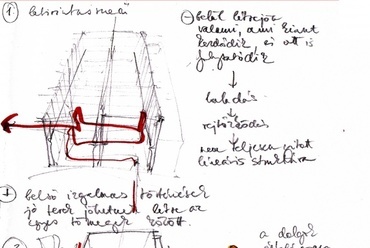 ①
⊖ belül létrejön
valami, ami kinnt
kezdődik, és ott is
folytatódik
↓
haladás
↓
rejtőzködés
↓
nem teljesen nyitott
lineáris struktúra
+ belső izgalmas történések
jó terek jöhetnek létre az
egyes tömegek között.
a dolgok